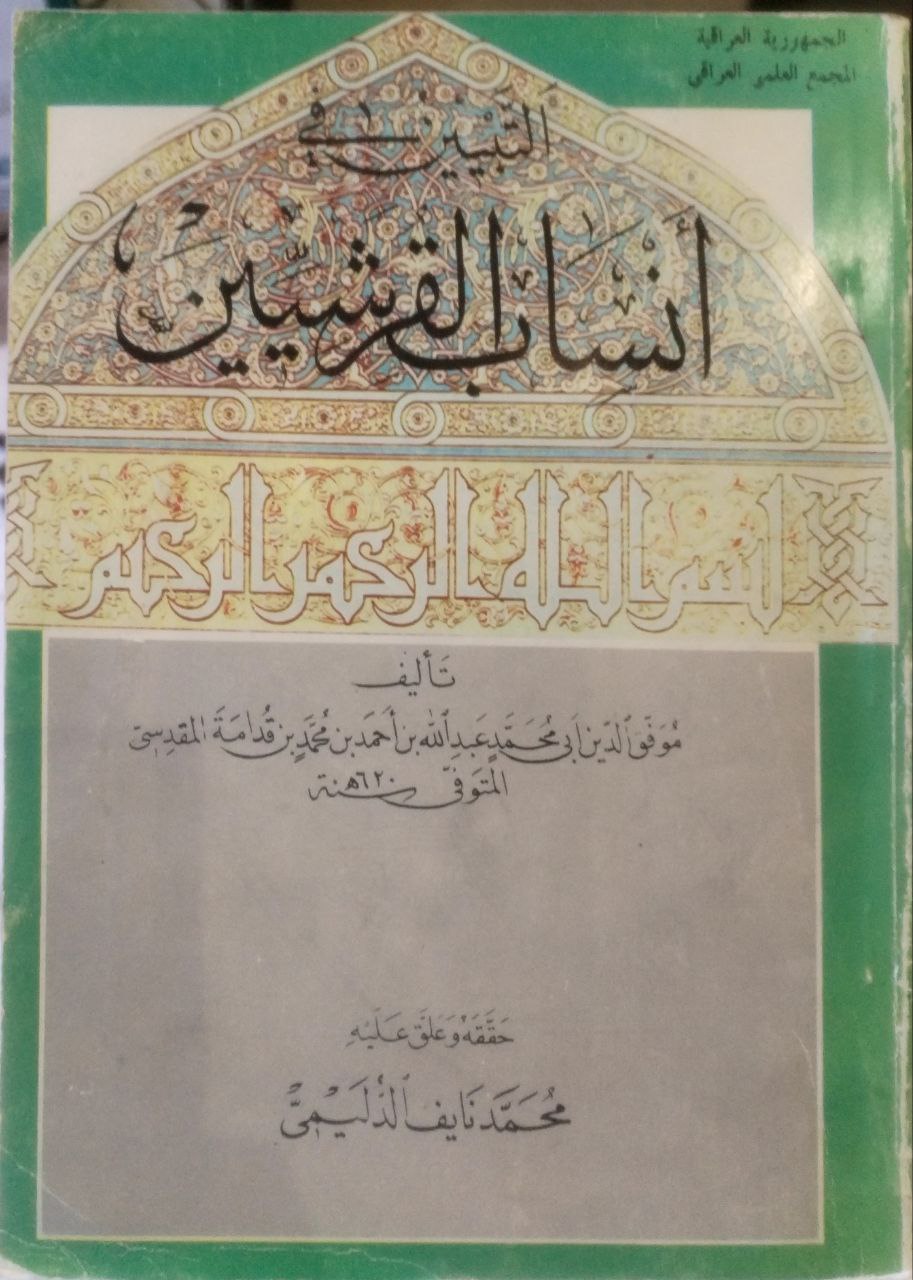 الجمهورية العراقية
المجمع العلمي العراقي
التبيين في
أنساب القرشيين
بسم الله الرحمن الرحيم
تأليف
موفق الدين أبي محمد عبد الله بن أحمد بن محمد بن قدامة المقدسي
المتوفى سنة ٦٢٠هـ
حققه وعلق عليه
محمد نايف الدليمي